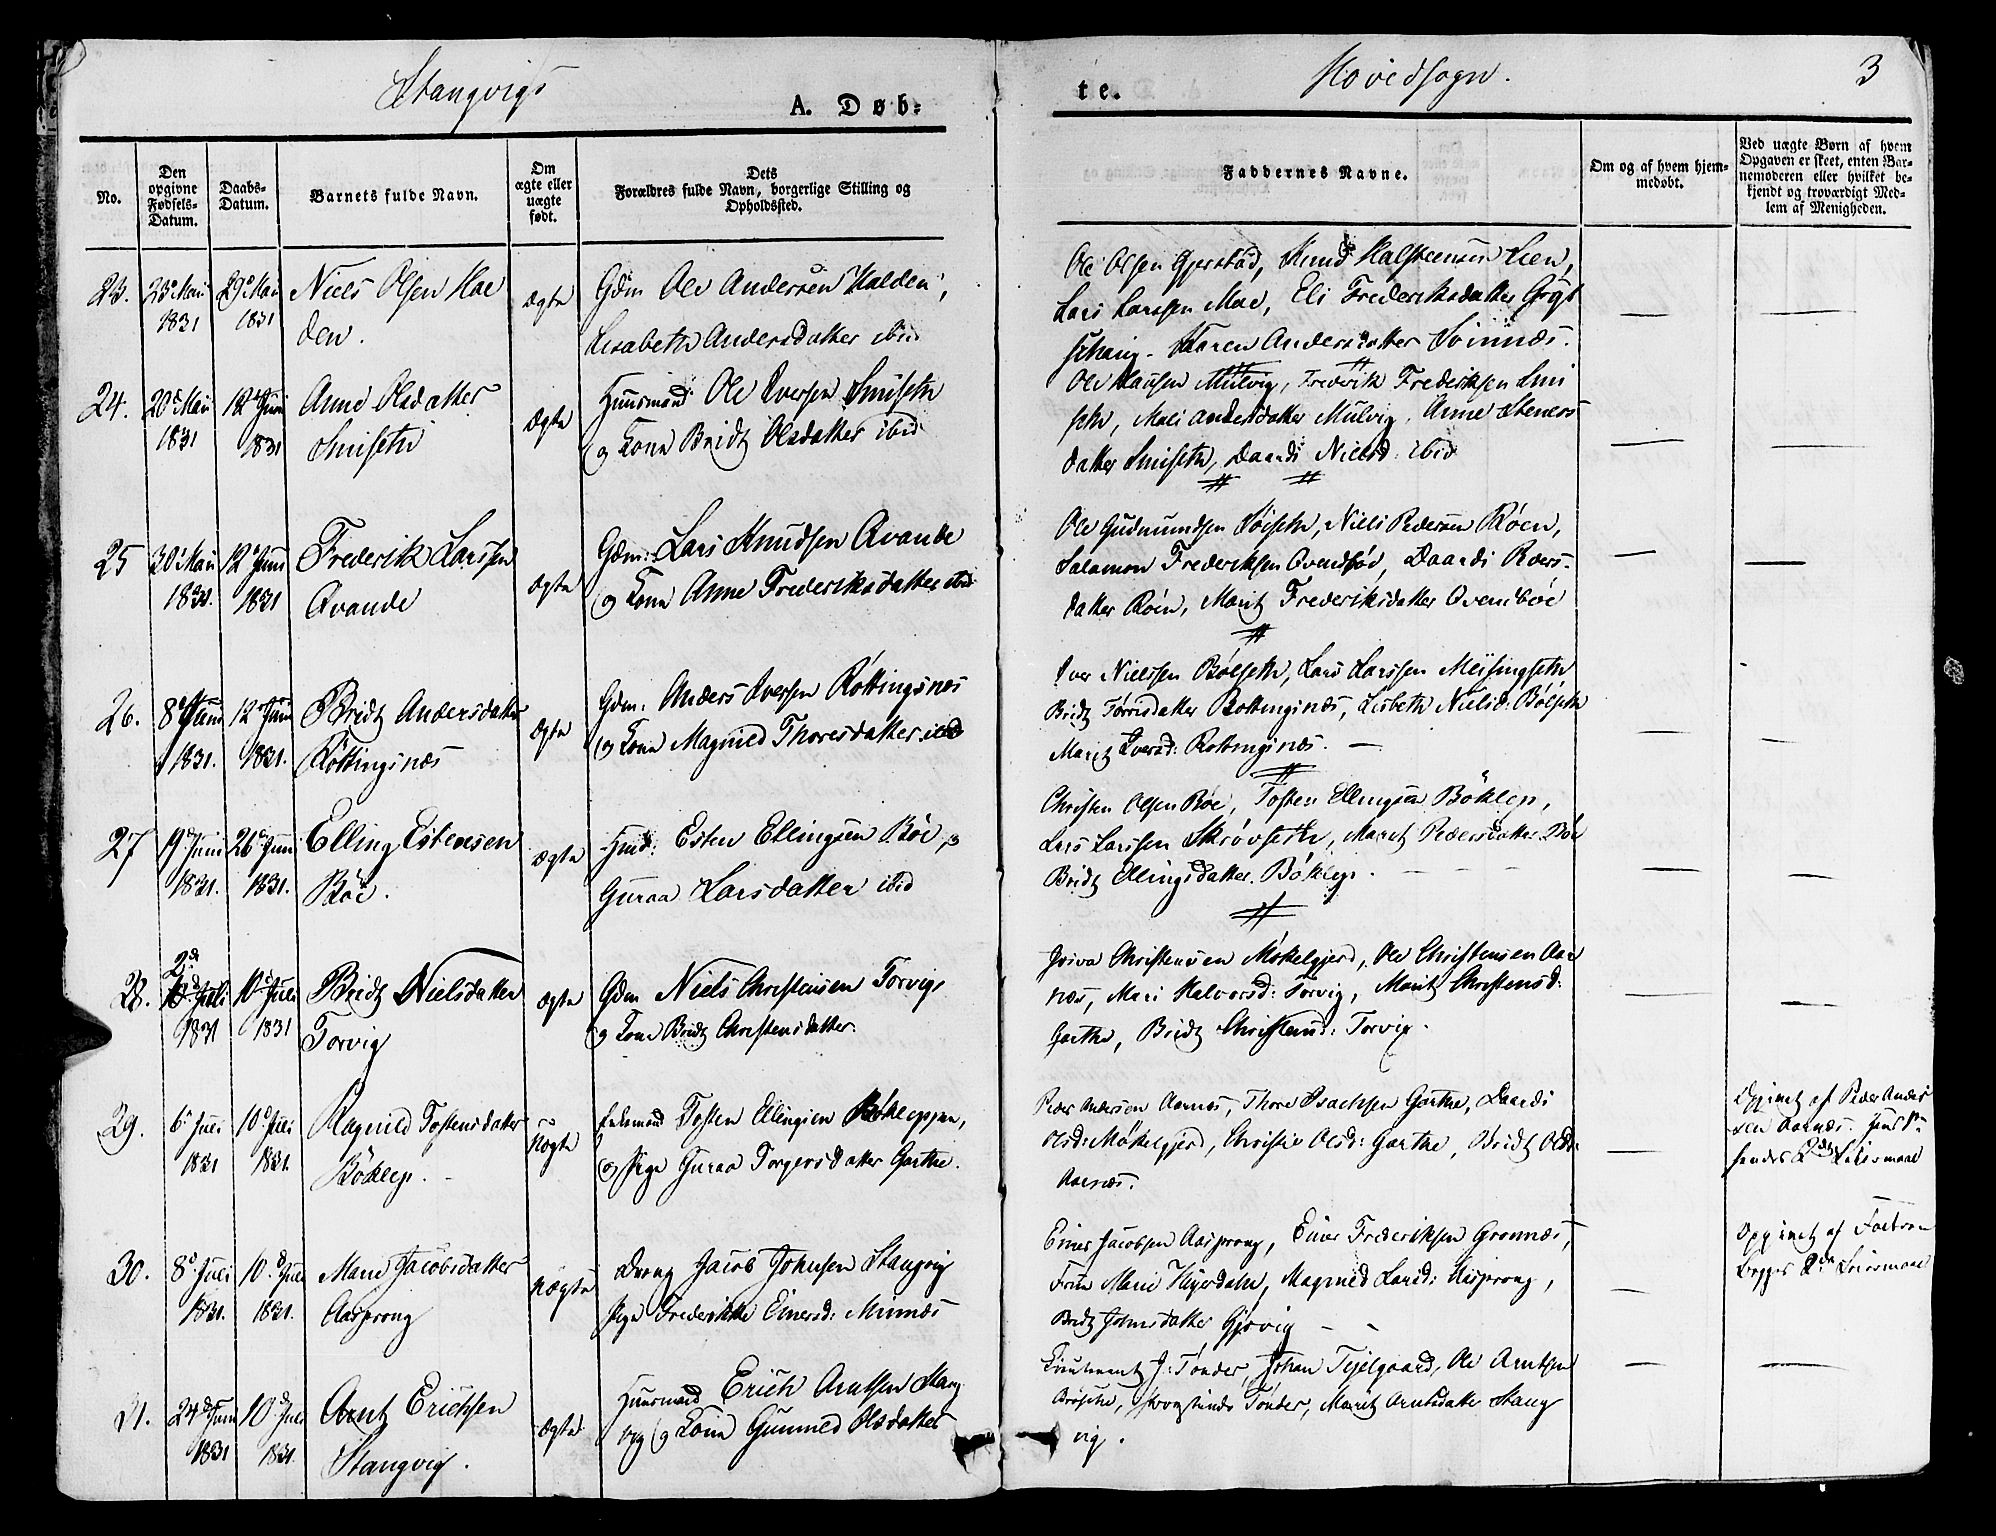 Stangvigs
Hovedsogn.
3
A. Døb-
te.
No.
Den opgivne Fødsels-Datum.
Daabs-Datum.
Barnets fulde Navn.
Om ægte eller uægte født.
Dets Forældres fulde Navn, borgerlige Stilling og Opholdssted.
Faddernes Navne.
Om og af hvem hjemmedøbt.
Ved uægte Børn af hvem Opgaven er skeet, enten Barnemoderen eller hvilket bekjendt og troværdigt Medlem af Menigheden.
23. 23d Mai 29d Mai Niels Olsen Hal
1831 1831 den.
Ægte
Gdm Ole Andersen Halden,
Lisabeth Andersdatter ibid
Ole Olsen Gjerstad, Knud Halsteensen Lien,
Lars Larssen Moe, Eli Frederiksdatter
Karen Andersdatter
24. 20d Mai 12d Juni Anne Olsdatter
1831 1831 Smiseth
Ægte
Huusmand Ole Iversen Smiseth
og Kone Bridt Olsdatter ibid
Ole Mulvig, Frederik Frederiksen Smi
seth, Mali Andersdatter Mulvig, Anne Steners
datter Smiseth, Daardi Nielsd: ibid
25 30d Mai 12d Juni Frederik Larssen
1831. 1831 Qvande
Ægte
Gdm: Lars Knudsen Qvande
og Kone Anne Frederiksdatter ibid
Ole Gudmundsen Søiseth, Niels Pedersen Røen,
Salamon Frederiksen Qvendbø, Daardi Roers-
datter Røen, Marit Frederiksdatter Qvendbøe
26. 8d Juni 12d Juni Bridt Andersdatter
1831. 1831. Røttingsnæs
Ægte
Gdm: Anders Iversen Røttingsnæs
og Kone Magnild Thoresdatter ibid
Iver Nielssen Bølseth, Lars Larssen Meisingseth
Bridt Tørrisdatter Rottingsnæs, Lisbeth Nielsd: Bølseth
Marit Iversd: Rottingsnæs.
27 19d Juni 26d Juni Elling Estensen
1831. 1831. Bøe.
Ægte
Hmd: Esten Ellingsen Bøe, og
Guraa Larsdatter ibid
Christen Olsen Bøe, Tosten Ellingsen Bøklep,
Lars Larssen Skrøvseth, Marit Pedersdatter Bøe
Bridt Ellingsdatter Bøklep.
28. 2d Juli 10d Juli Bridt Nielsdatter
1831 1831 Torvig
Ægte
Gdm Niels Christensen Torvig
og Kone Bridt Christensdatter.
Christensen Møkelgjerd, Ole Christensen Aar
næs, Mari Halvorsd: Torvig, Marit Christensd:
Garthe, Bridt Christensd: Torvig.
29. 6d Juli 10d Juli Ragnild Tostensdatter
1831 1831. Bøklep.
Uægte
Tosten Ellingsen Bøkleppen,
og Pige Guraa Torgersdatter Garthe.
Peder Andersen Aarnæs, Thore Isachsen Garthe, Daardi
Olsd: Møkelgjerd, Christie Olsd: Garthe, Bridt Olsd:
Aarnæs.
Oppivet af Peder Ander
sen Aarnæs.
2det Leiermaal
30. 8d Juli 10d Juli Marie Jacobsdatter
1831. 1831. Aasprong
Uægte
Dreng Jacob Johnsen Stangvig
Pige Frederikke Einersd: Minnæs
Einer Jacobsen Aasprong, Einer Frederiksen Grønnæs,
Marie Heyerdahl, Magnild Larsd: Aasprong,
Bridt Johnsdatter Gjøvig
Oppivet af Faderen
Begges 2det Leiermaal
31. 24d Juni 10d Juli Arnt Erichsen
1831 1831. Stangvig.
Ægte
Huusmand Erich Arntsen Stang
vig og Kone Gunnild Olsdatter
Lieutenant J: Tønder, Johan Tejelgaard, Ole Arntsen
Tønder, Marit Arntsdatter Stang
vig.